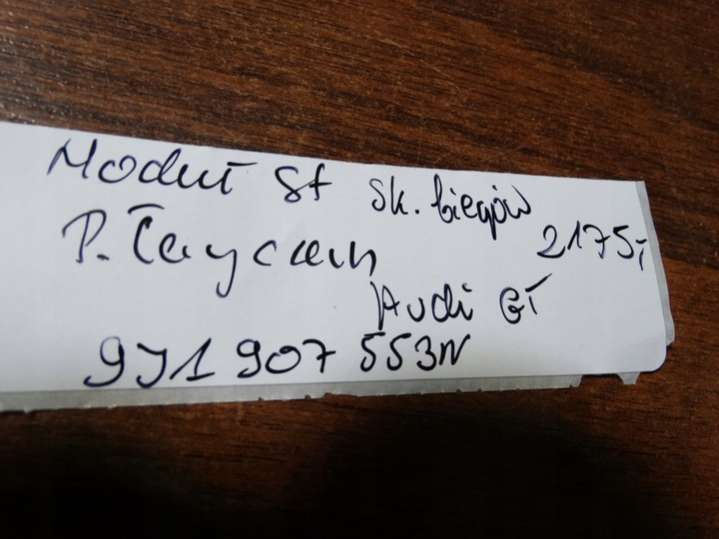 Moduł St sk. biegów
P. Taycan 2175,-
Audi GT
9J1 907 553N